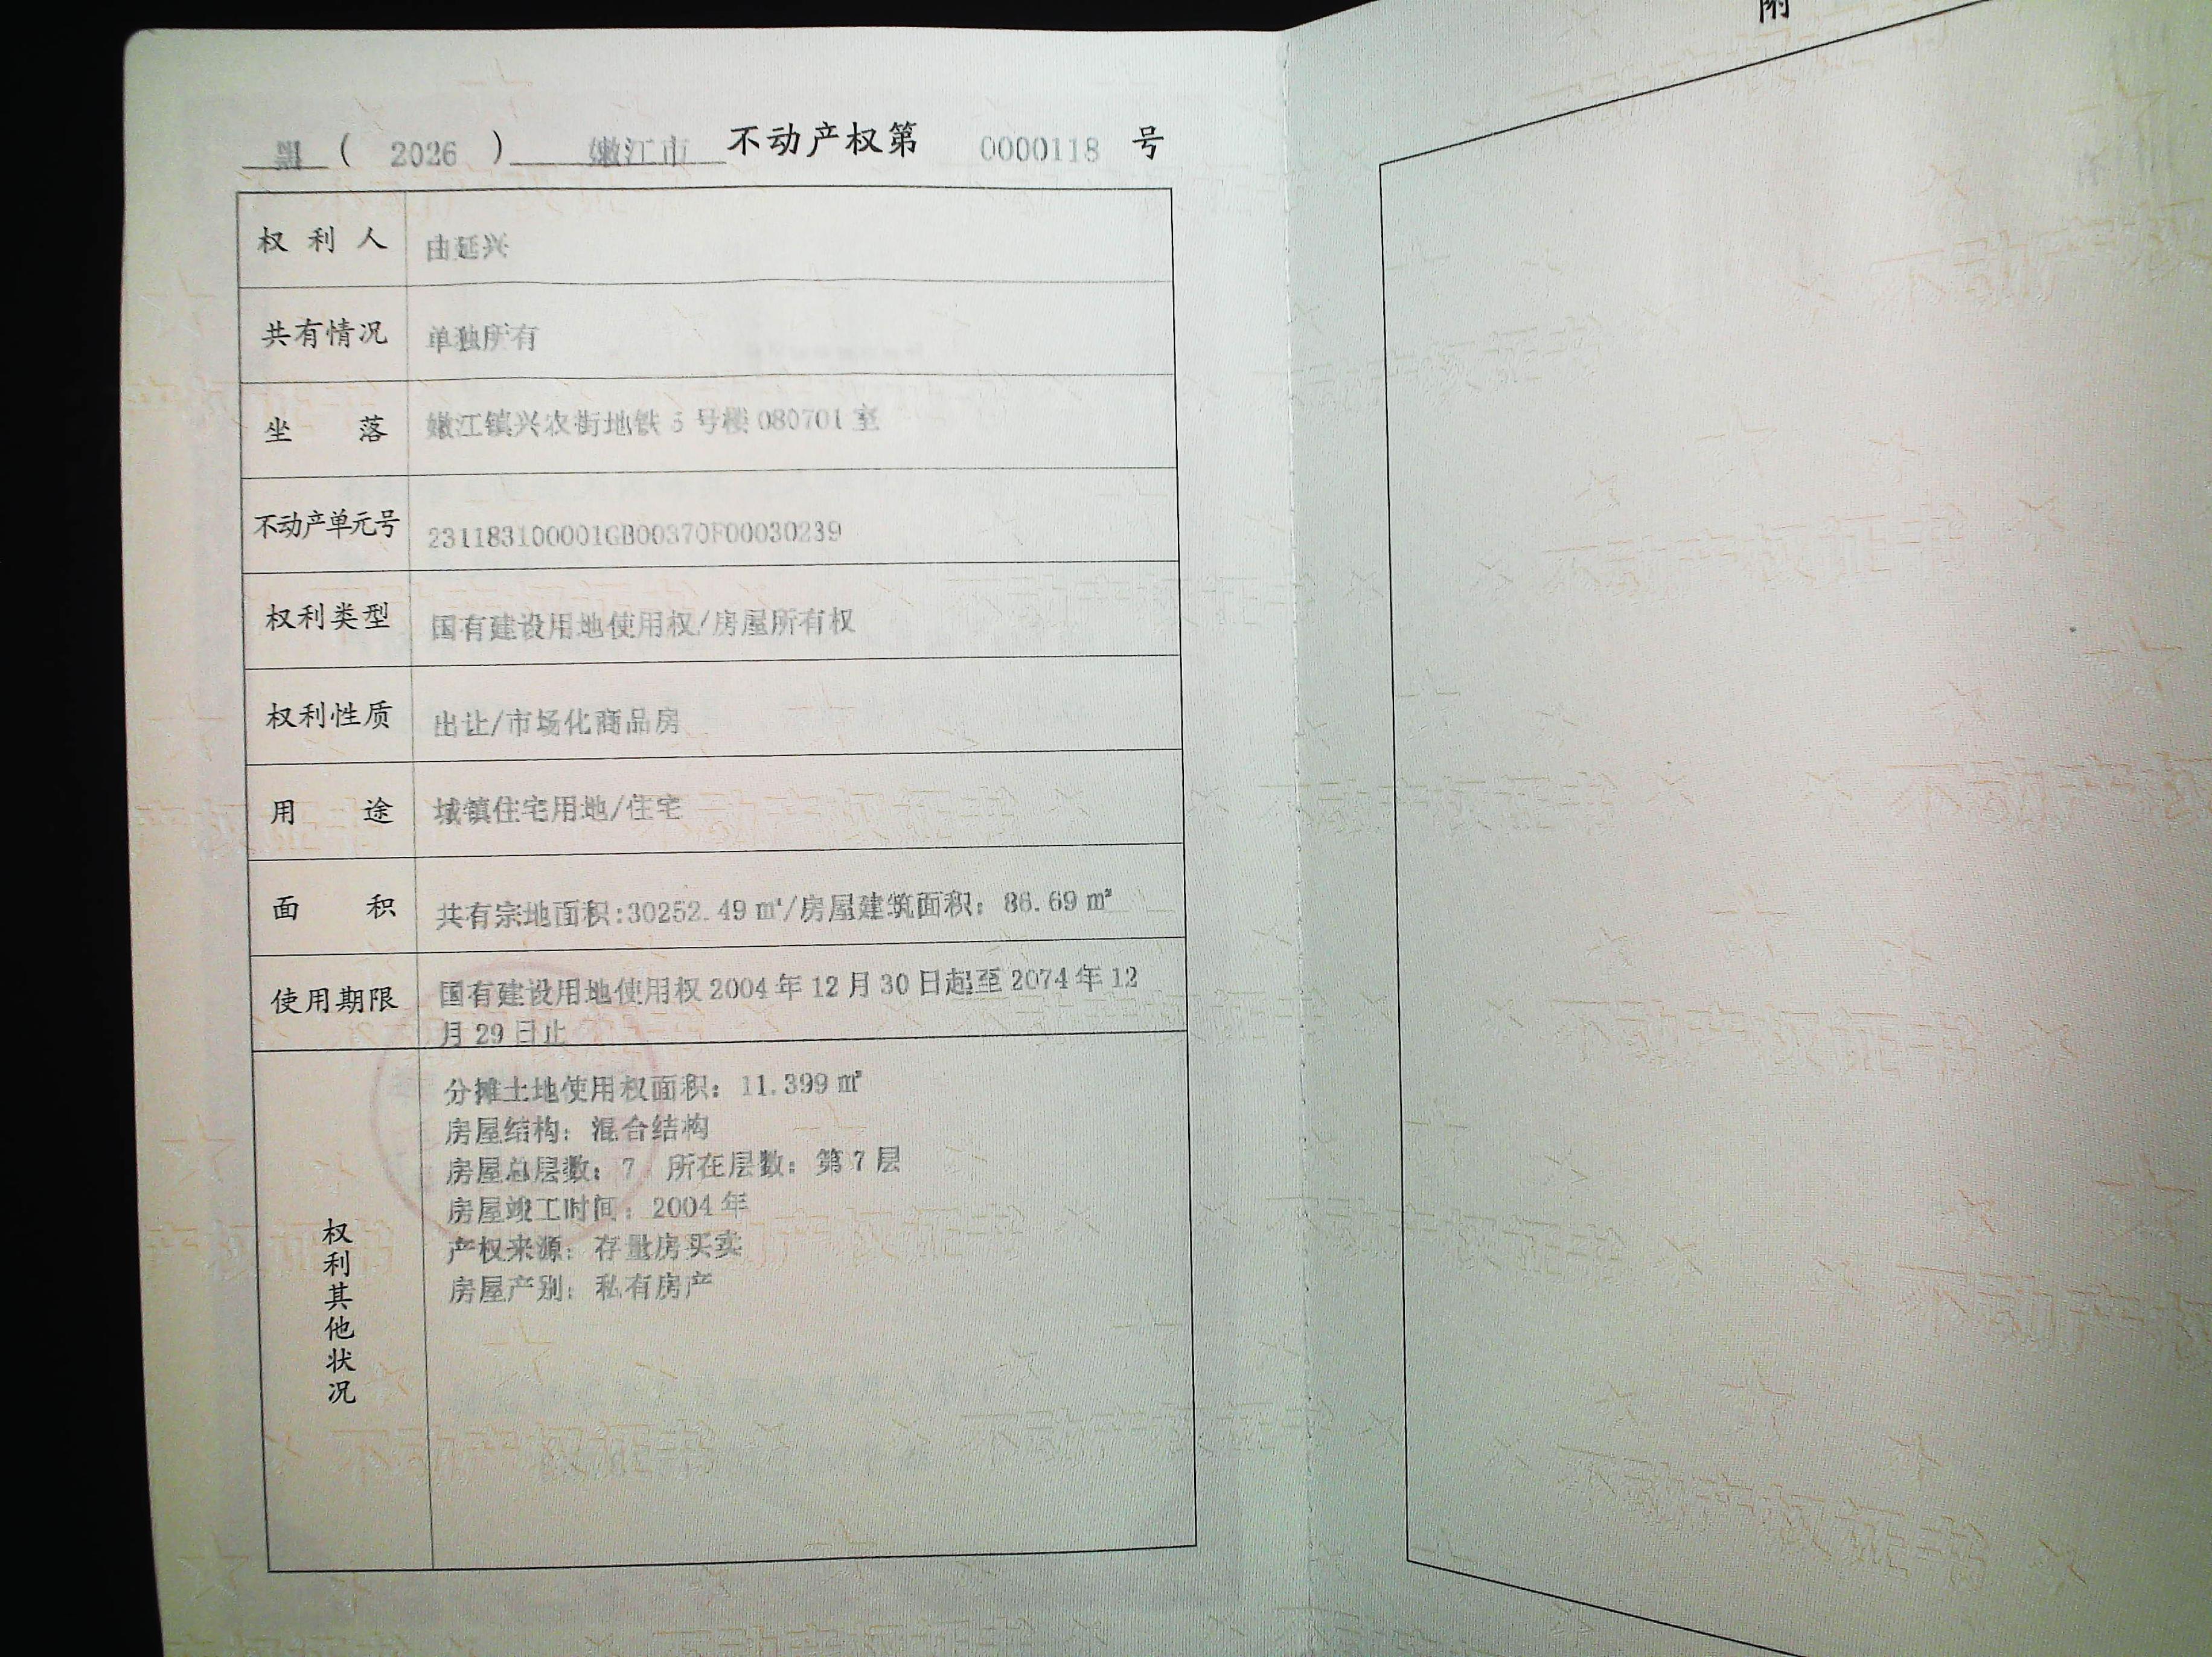 黑 ( 2026 ) 嫩江市 不动产权第 0000118 号
权利人 由延兴
共有情况 单独所有
坐落 嫩江镇兴农街地铁 5 号楼 080701 室
不动产单元号 231183100001GB00370F00030239
权利类型 国有建设用地使用权/房屋所有权
权利性质 出让/市场化商品房
用途 城镇住宅用地/住宅
面积 共有宗地面积:30252.49 ㎡/房屋建筑面积: 86.69 ㎡
使用期限 国有建设用地使用权 2004 年 12 月 30 日起至 2074 年 12
月 29 日止
权利其他状况
分摊土地使用权面积: 11.399 ㎡
房屋结构: 混合结构
房屋总层数: 7 所在层数: 第 7 层
房屋竣工时间: 2004 年
产权来源: 存量房买卖
房屋产别: 私有房产
附